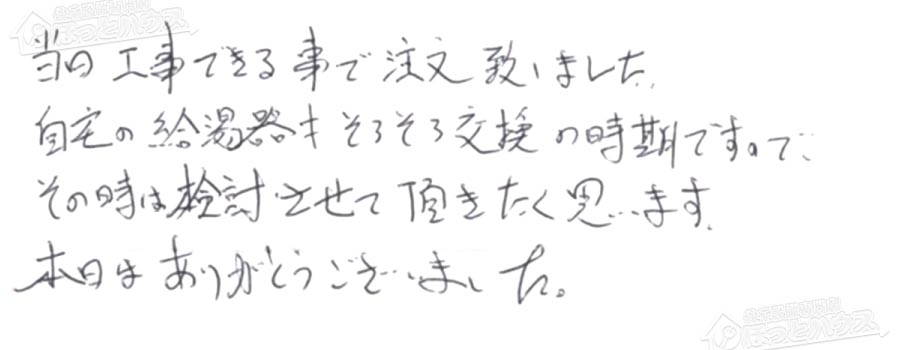 当日工事できる事で注文致しました
自宅の給湯器もそろそろ交換の時期ですので、
その時は検討させて頂きたく思います。
本日はありがとうございました。
ほっとハウス
ほっとハウス